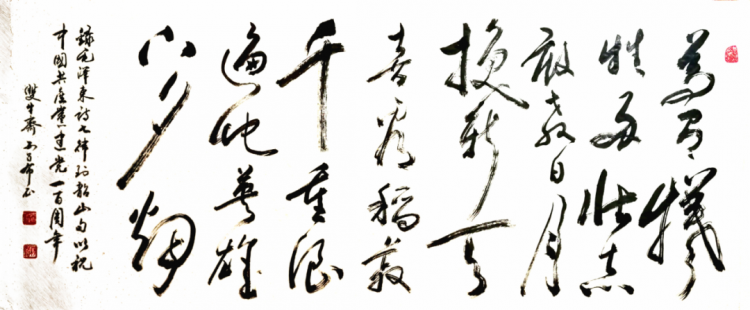 為有犧
牲多壮志
敢教日月
換新天
喜看稻菽
千重浪
遍地英雄
下夕烟
錄毛澤東詩七律到韶山句以祝
中國共産黨建党一百周年
雙牛齋